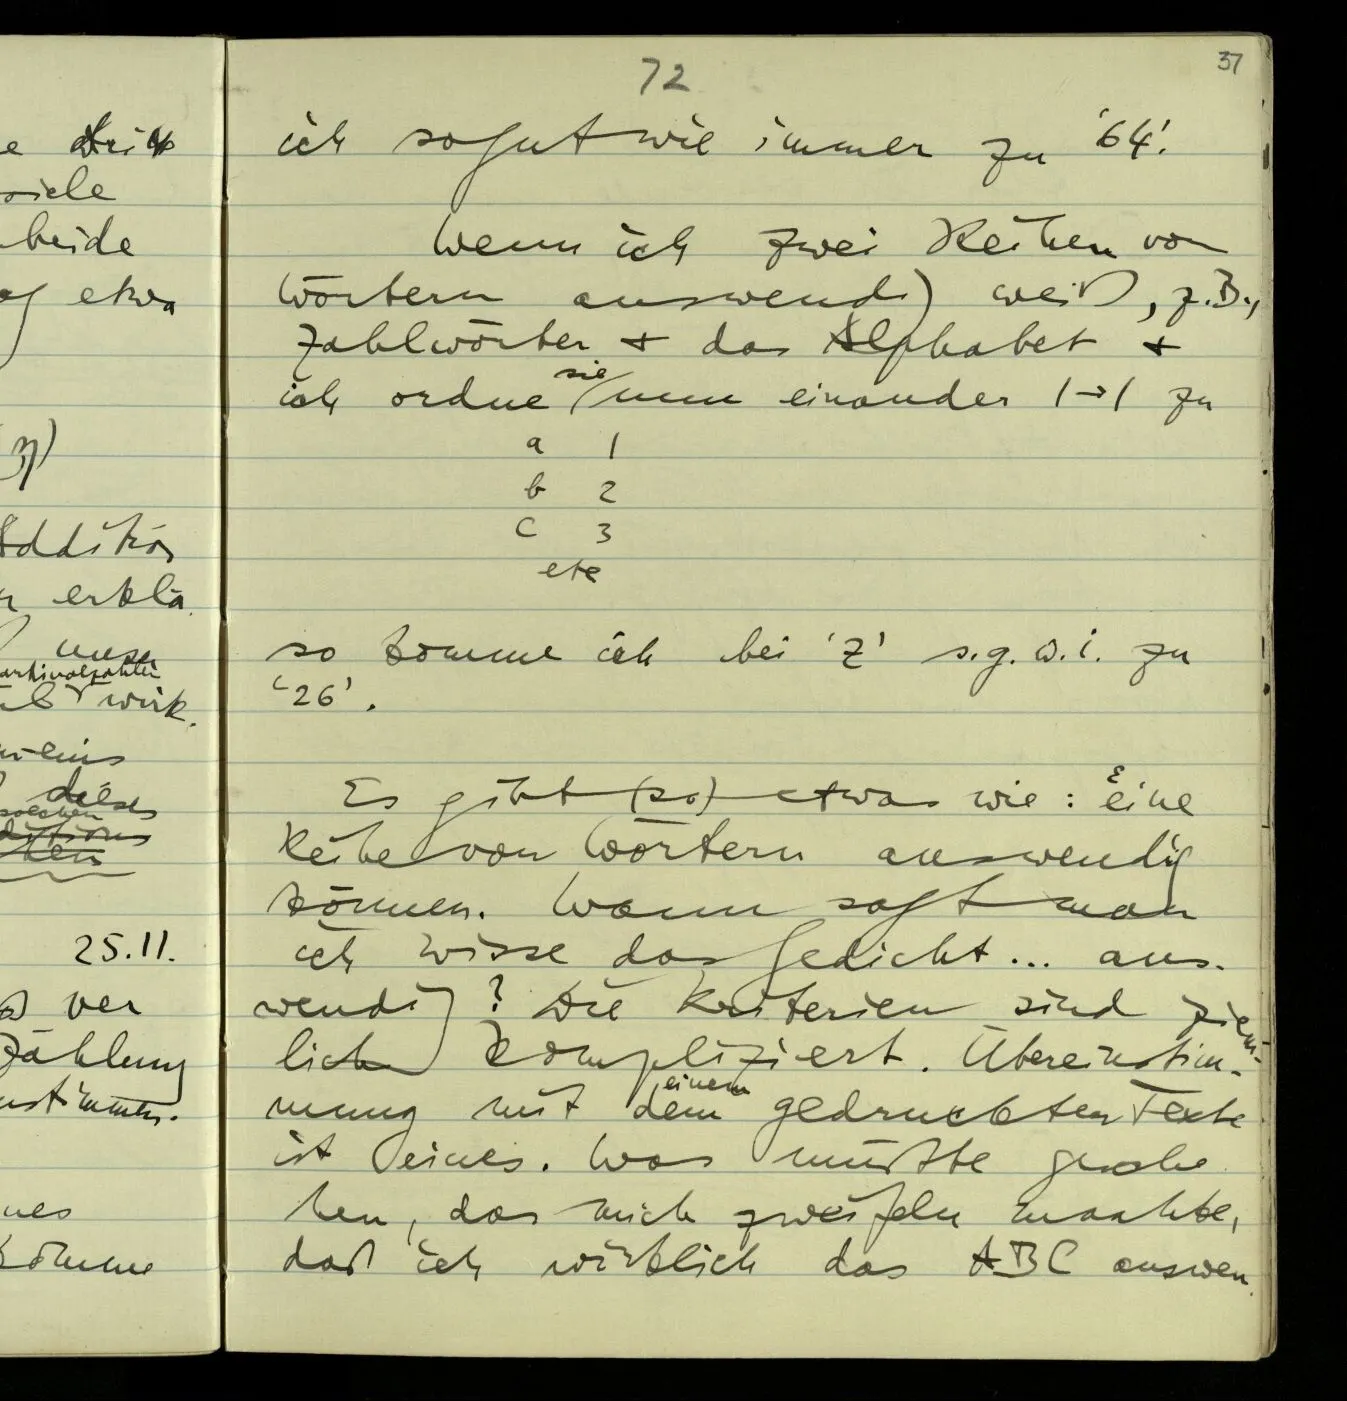 72
37
ich sogut wie immer zu '64'.
Wenn ich zwei Reihen von
Wörtern auswendig weiß, z.B.,
Zahlwörter + das Alphabet +
ich ordne sie nun einander 1→1 zu
a 1
b 2
c 3
etc
so komme ich bei 'z' s.g.w.i. zu
'26'.
Es gibt (so) etwas wie: Eine
Reihe von Wörtern auswendig
können. Wann sagt man
ich wisse das Gedicht... aus-
wendig? Die Kriterien sind ziem-
lich kompliziert. Übereinstim-
mung mit dem einem gedruckten Texte
ist eines. Was müßte gesche
hen, das mich zweifeln machte,
daß ich wirklich das ABC auswen
viele
beide
etwa
Addition
erklä
wirk.
dieses
25.11.
ver
zählung
nes
komme